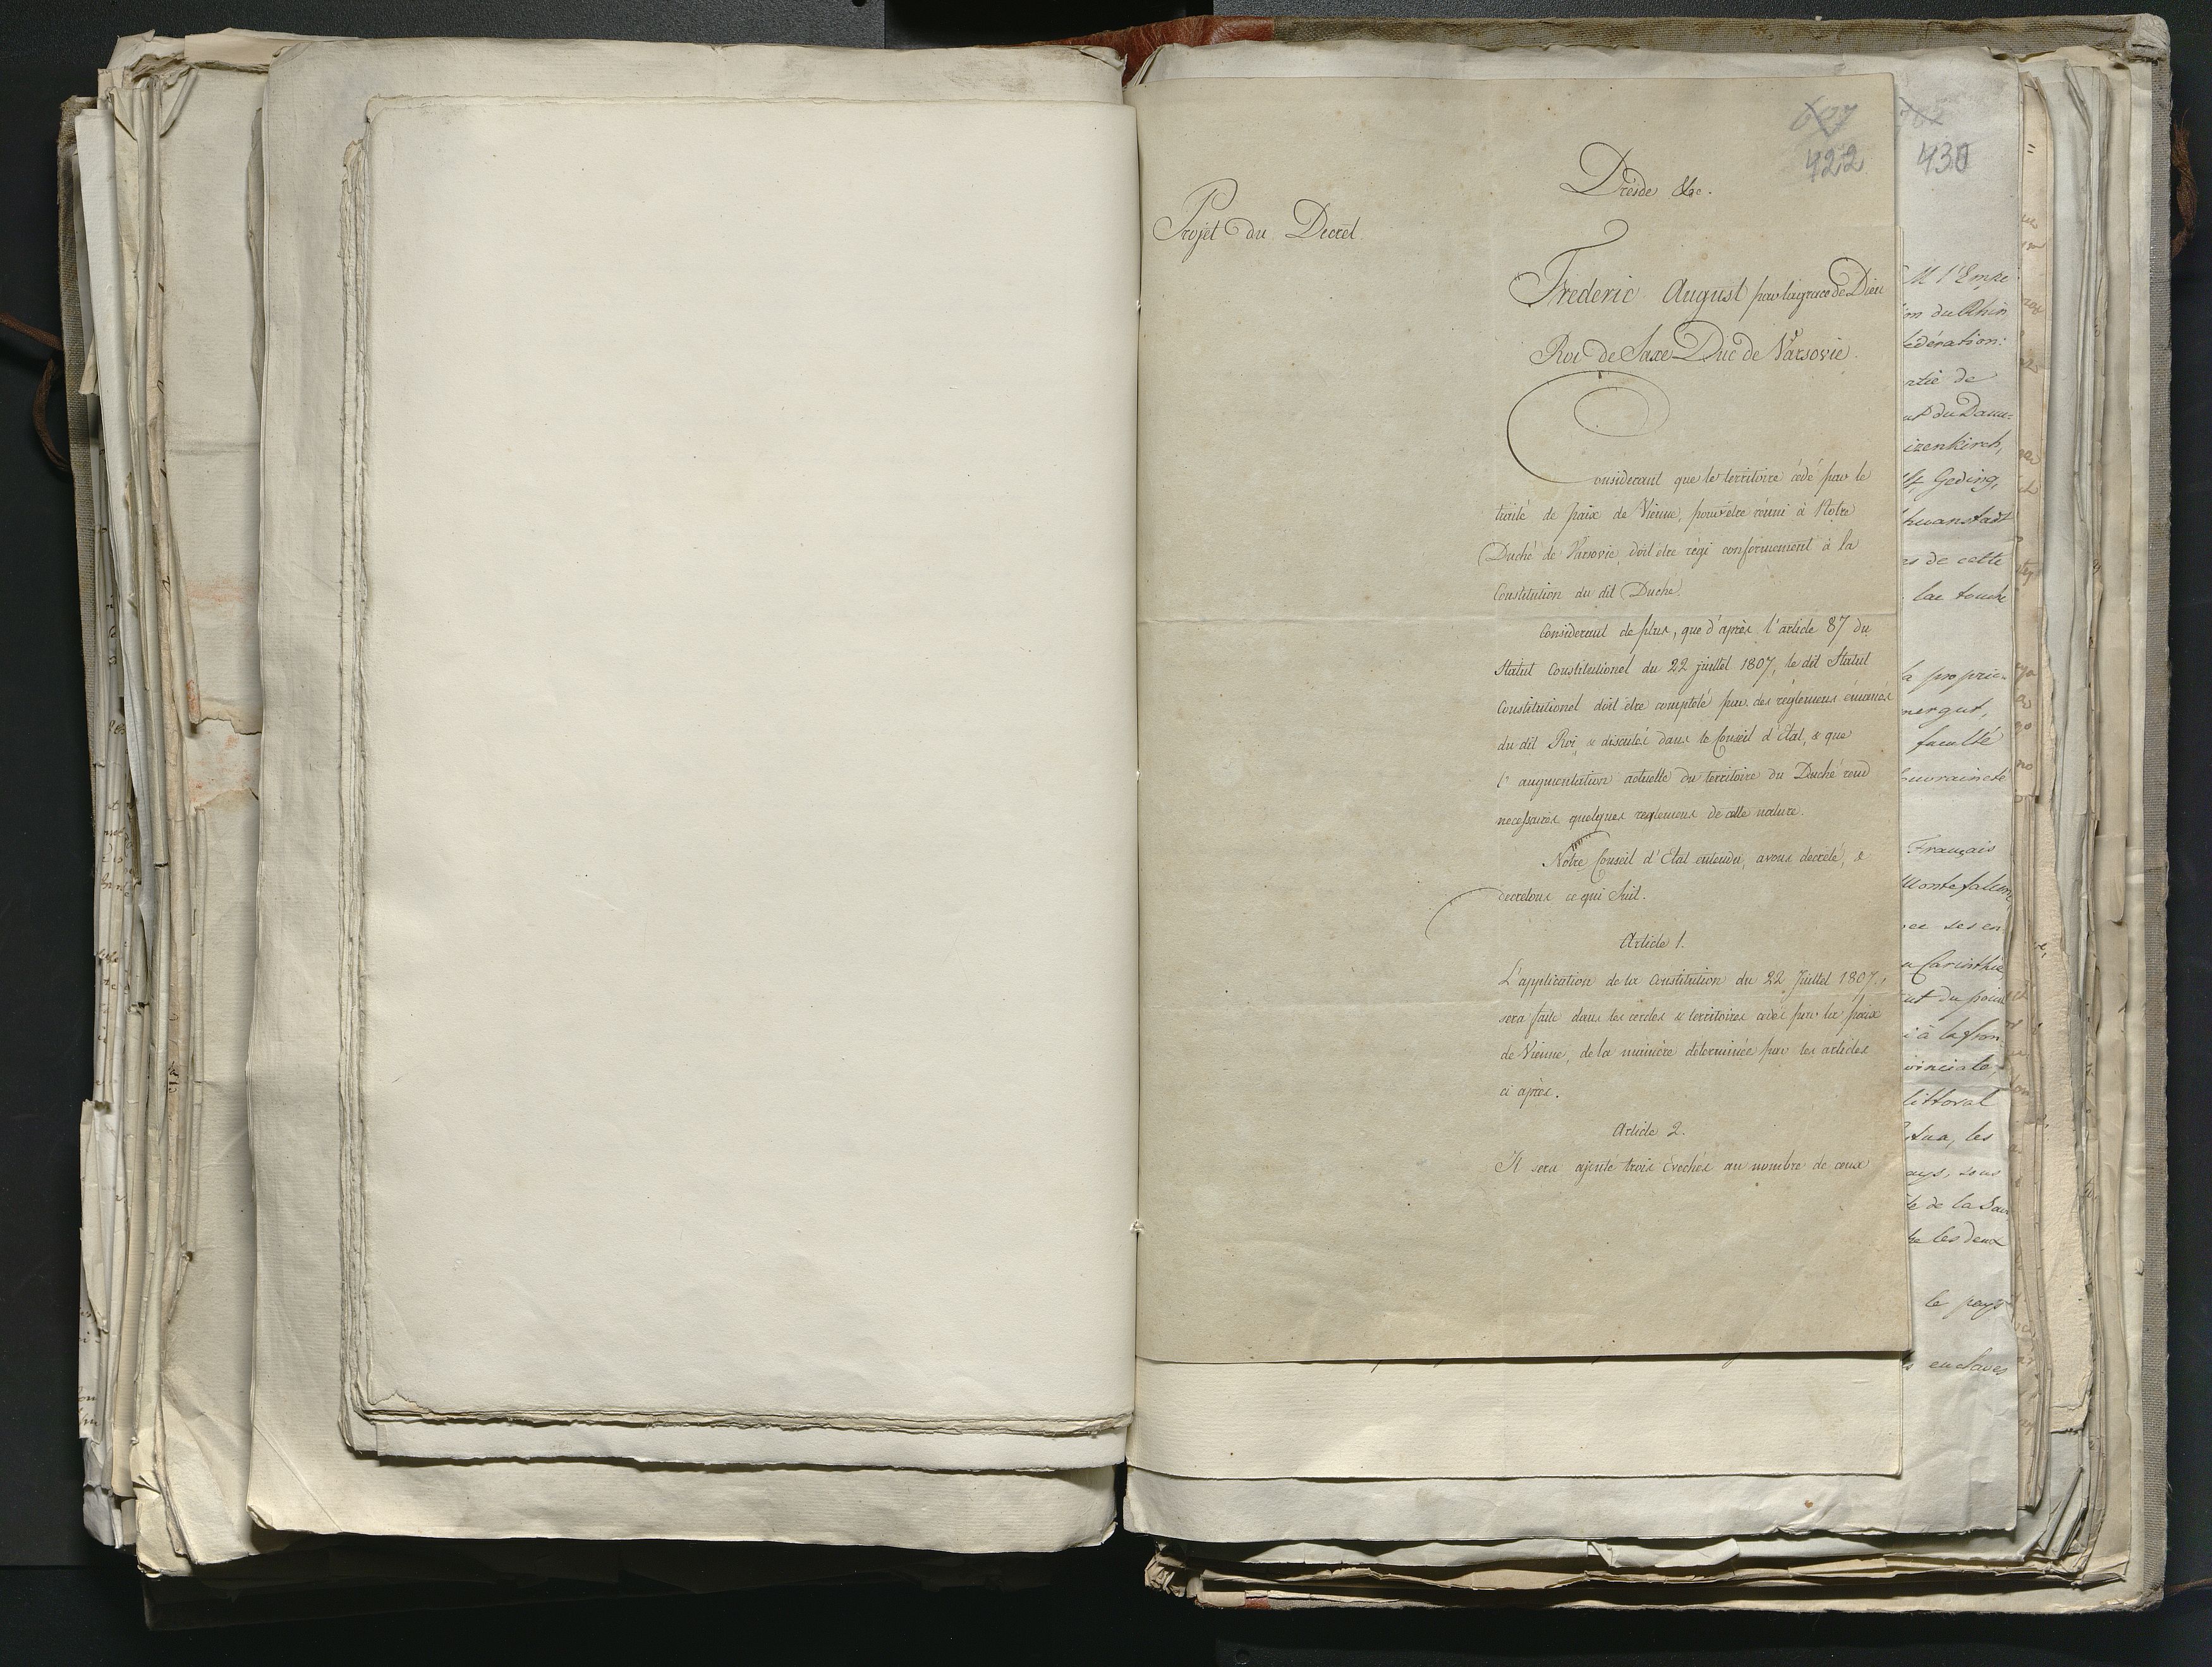 627
422
Dresde &c.
Projet du Decret
Frederic August par la grace de Dieu
Roi de Saxe Duc de Varsovie.
Considerant que le territoire cédé par le
traité de paix de Vienne, pour être réuni à Notre
Duché de Varsovie, doit être régi conformement à la
Constitution du dit Duché.
Considerant de plus, que d'après l'article 87 du
Statut Constitutionel du 22 juillet 1807, le dit Statut
Constitutionel doit être completé par des réglemens émanés
du dit Roi, & discutés dans le Conseil d'Etat, & que
l'augmentation actuelle du territoire du Duché rend
necessaires quelques reglemens de cette nature.
Notre Conseil d'Etat entendu, avons decreté, &
decretons ce qui Suit.
Article 1.
L'application de la Constitution du 22 Juillet 1807.,
sera faite dans les cercles & territoires cedés par la paix
de Vienne, de la manière determinée par les articles
ci après.
Article 2.
Il sera ajouté trois Evechés au nombre de ceux
702
430
M l'Empe
on du Rhin
édération:
rtie de
du Danu=
izenkirch,
Geding,
hwanstadt
es de cette
lac touche
la proprie-
faculté
ouveraineté
Français
Montefalcone,
a Carinthie,
littoral
les
ays, sous
de la Sau
les deux
le pays
enclaves